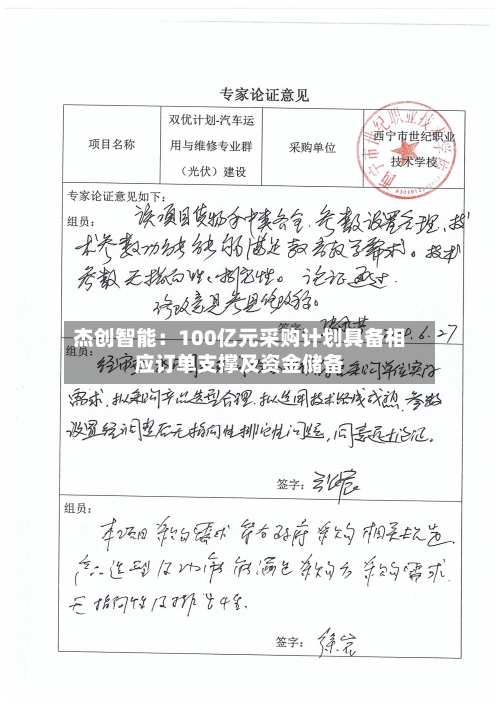 专家论证意见
项目名称
双优计划-汽车运
用与维修专业群
（光伏）建设
采购单位
西宁市世纪职业
技术学校
专家论证意见如下：
组员：
该项目货物种类齐全，参数设置合理，技
术参数功能能够满足教育教学需求。技术
参数无指向性、排它性。论证通过
签字：
6.27
杰创智能：100亿元采购计划具备相
应订单支撑及资金储备
组员：
需求，拟采购产品选型合理，拟选用技术路线成熟，参数
设置经调整后无指向性排它性问题，同意通过论证。
签字：
组员：
本项目采购需求符合政府采购相关规定
产品选型及功能能满足采购方采购需求
无指向性及排他性
签字：